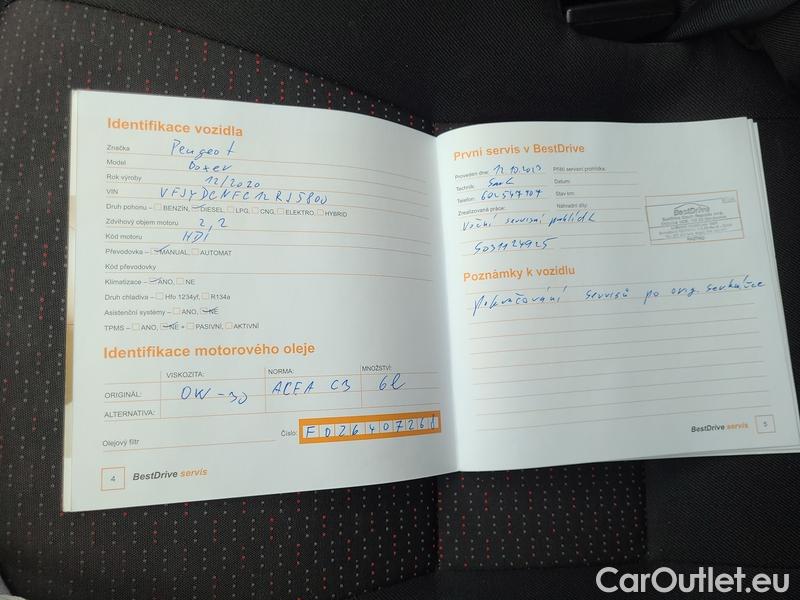 Identifikace vozidla
Značka Peugeot
Model Boxer
Rok výroby 12/2020
VIN
Druh pohonu – BENZÍN, DIESEL, LPG, CNG, ELEKTRO, HYBRID
Zdvihový objem motoru 2,2
Kód motoru HDI
Převodovka – MANUAL, AUTOMAT
Kód převodovky
Klimatizace – ANO, NE
Druh chladiva – Hfo 1234yf, R134a
Asistenční systémy – ANO, NE
TPMS – ANO, NE + PASIVNÍ, AKTIVNÍ
Identifikace motorového oleje
VISKOZITA: NORMA: MNOŽSTVÍ:
ORIGINÁL: 0W-30 ACEA C3 6l
ALTERNATIVA:
Olejový filtr Číslo: F026407268
4 BestDrive servis
První servis v BestDrive
Proveden dne: 12.10.2023 Příští servisní prohlídka:
Technik: Datum:
Telefon: 602547707 Stav km:
Zrealizovaná práce: Náhradní díly:
Roční servisní
5031124925
BestDrive
Poznámky k vozidlu
Pokračování servisů po orig.
BestDrive servis 5
CarOutlet.eu